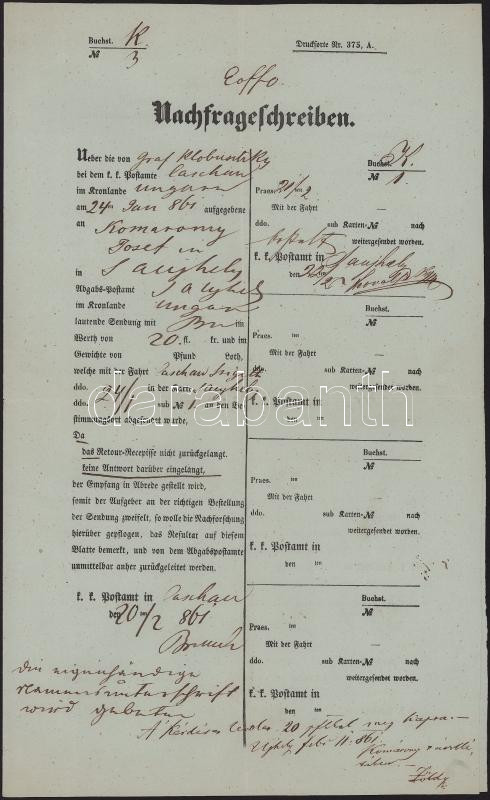 Buchst. K.
№ 3
Druckforte Nr. 375, A.
Nachfrageschreiben.
Ueber die von Graf Klobusitzky
bei dem k. k. Postamte Caschau
im Kronlande Ungarn
am 24ten Jan 861 aufgegebene
an Komaromy
Josef in
in S a Ujhely
Abgabs-Postamt S a Ujhely
im Kronlande Ungarn
lautende Sendung mit im
Werth von 20 fl. kr. und im
Gewichte von Pfund Loth,
welche mit der Fahrt Caschau
ddo. 24/1 in der Karte Ujhely
sub № 1 an den Be-
stimmungsort abgesendet wurde,
Da
das Retour-Recepisse nicht zurückgelangt.
keine Antwort darüber eingelangt,
der Empfang in Abrede gestellt wird,
somit der Aufgeber an der richtigen Bestellung
der Sendung zweifelt, so wolle die Nachforschung
hierüber gepflogen, das Resultat auf diesem
Blatte bemerkt, und von dem Abgabspostamte
unmittelbar anher zurückgeleitet werden.
k. k. Postamt in Caschau
den 20/2 861
die eigenhändige
Namensunterschrift
wird gebeten
Buchst. K.
№ 1.
Praes. 21/2
Mit der Fahrt —
ddo. sub Karten-№ nach
weitergesendet worden.
k. k. Postamt in S a Ujhely
den 22/2
Buchst.
№
Praes. ten
Mit der Fahrt —
ddo. sub Karten-№ nach
weitergesendet worden.
k. k. Postamt in
den ten
Buchst.
№
Praes. ten
Mit der Fahrt —
ddo. sub Karten-№ nach
weitergesendet worden.
k. k. Postamt in
den ten
Buchst.
№
Praes. ten
Mit der Fahrt —
ddo. sub Karten-№ nach
weitergesendet worden.
k. k. Postamt in
den ten
A 20
Ujhely febr 861.
Komáromy
darabanth